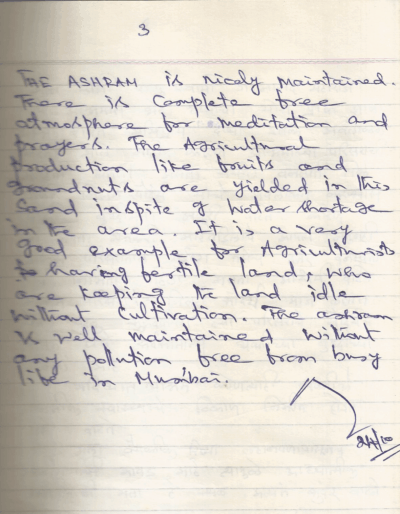 3
THE ASHRAM is nicely maintained.
There is complete free
atmosphere for meditation and
prayers. The Agricultural
production like fruits and
groundnuts are yielded in this
Sand inspite of water shortage
in the area. It is a very
good example for Agriculturists
having fertile land, who
are keeping the land idle
without cultivation. The ashram
is well maintained without
any pollution free from busy
life in Mumbai.
24/10